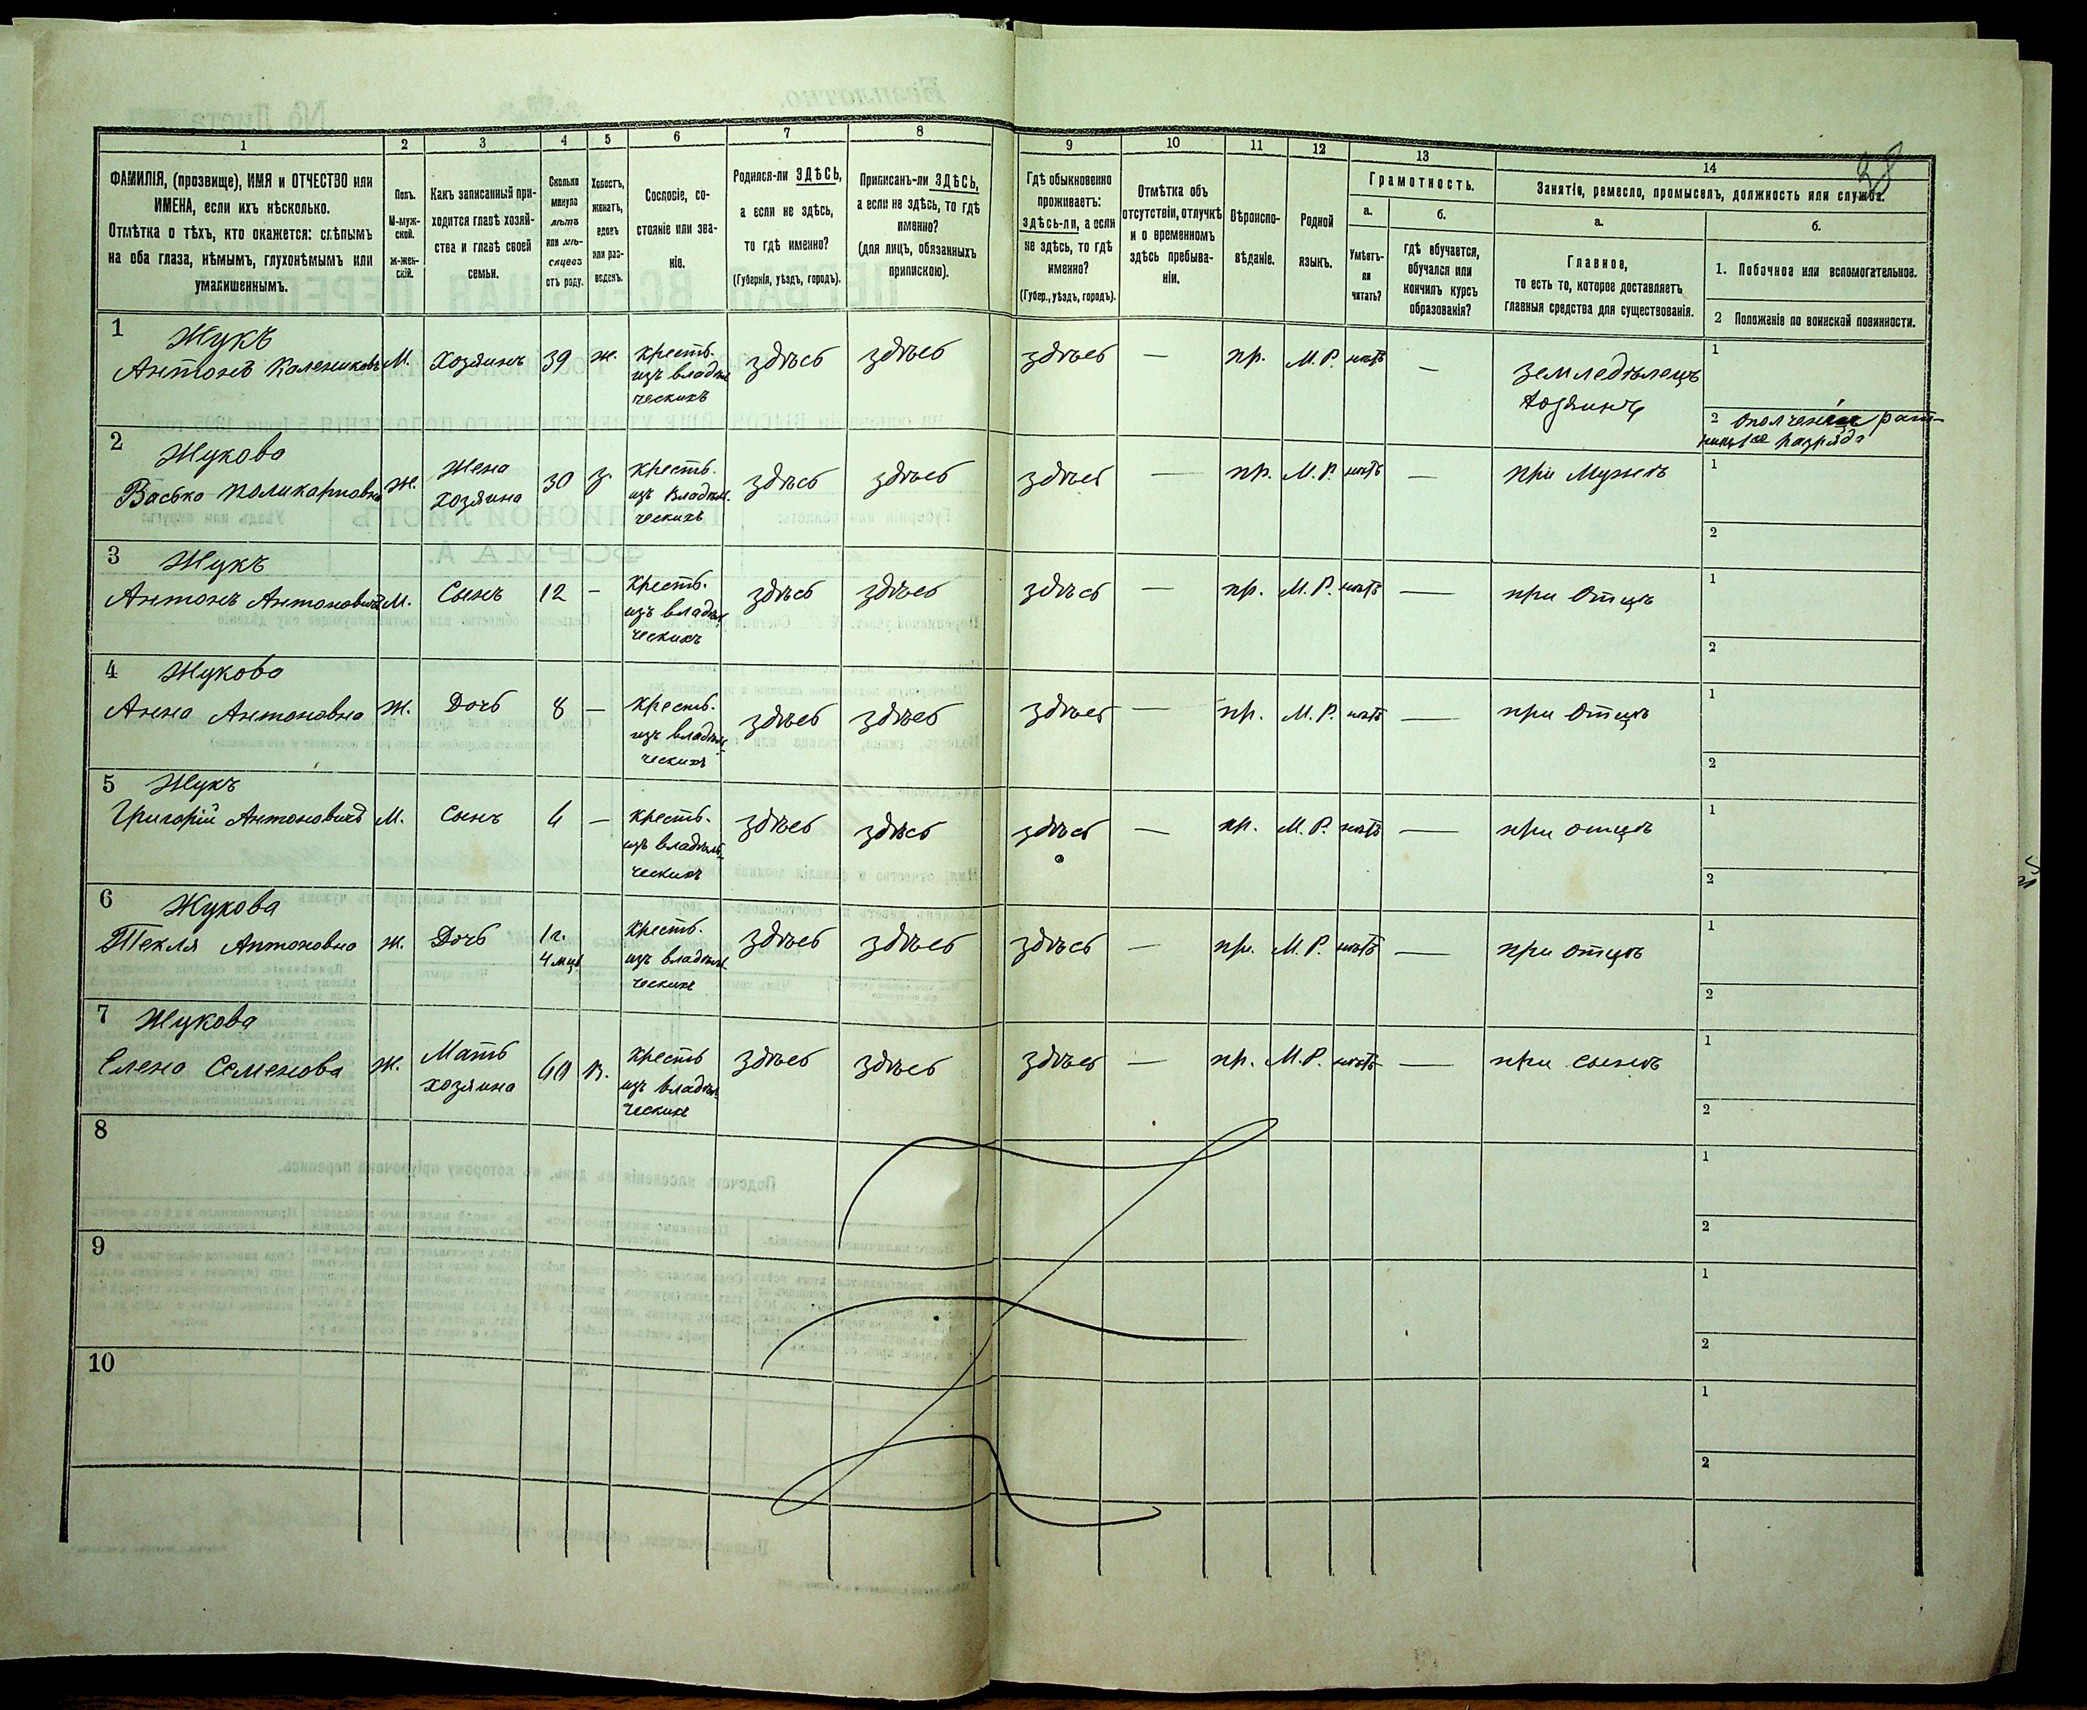 28
1 2 3 4 5 6 7 8 9 10 11 12 13 14
ФАМИЛІЯ, (прозвище), ИМЯ и ОТЧЕСТВО или
ИМЕНА, если ихъ нѣсколько.
Отмѣтка о тѣхъ, кто окажется: слѣпымъ
на оба глаза, нѣмымъ, глухонѣмымъ или
умалишеннымъ.
Полъ.
М-муж-
ской.
ж-жен-
скій.
Какъ записанный при-
ходится главѣ хозяй-
ства и главѣ своей
семьи.
Сколько
минуло
лѣтъ
или мѣ-
сяцевъ
отъ роду.
Холостъ,
женатъ,
вдовъ
или раз-
веденъ.
Сословіе, со-
стояніе или зва-
ніе.
Родился-ли ЗДѢСЬ,
а если не здѣсь,
то гдѣ именно?
(Губернія, уѣздъ, городъ).
Приписанъ-ли ЗДѢСЬ,
а если не здѣсь, то гдѣ
именно?
(для лицъ, обязанныхъ
припискою).
Гдѣ обыкновенно
проживаетъ:
здѣсь-ли, а если
не здѣсь, то гдѣ
именно?
(Губер., уѣздъ, городъ).
Отмѣтка объ
отсутствіи, отлучкѣ
и о временномъ
здѣсь пребыва-
ніи.
Вѣроиспо-
вѣданіе.
Родной
языкъ.
Грамотность.
а.
Умѣетъ-
ли
читать?
б.
гдѣ обучается,
обучался или
кончилъ курсъ
образованія?
Занятіе, ремесло, промыселъ, должность или служба.
а.
Главное,
то есть то, которое доставляетъ
главныя средства для существованія.
б.
1. Побочное или вспомогательное.
2 Положеніе по воинской повинности.
1 Жукъ
Антонъ Калениковъ М. Хозяинъ 39 ж. крестъ. здѣсь здѣсь здѣсь — пр. М.Р. нѣтъ — земледѣлецъ 1
изъ владѣль
ческихъ
хозяинъ
2 Ополченія рат-
никъ разряда
2 Жукова
Васька Поликарповна Ж. Жена 30 з. крестъ. здѣсь здѣсь здѣсь — пр. М.Р. нѣтъ — при Мужѣ 1
хозяина изъ Владѣл.
ческихъ 2
3 Жукъ
Антонъ Антоновичъ М. Сынъ 12 — крестъ. здѣсь здѣсь здѣсь — пр. М.Р. нѣтъ — при Отцѣ 1
изъ владѣл
ческихъ 2
4 Жукова
Анна Антоновна Ж. Дочь 8 — крестъ. здѣсь здѣсь здѣсь — пр. М.Р. нѣтъ — при Отцѣ 1
изъ владѣл
ческихъ 2
5 Жукъ
Григорій Антоновичъ М. Сынъ — крестъ. здѣсь здѣсь здѣсь — пр. М.Р. нѣтъ — при отцѣ 1
изъ владѣль-
ческихъ 2
6 Жукова
Текля Антоновна ж. Дочь 1 г. крестъ. здѣсь здѣсь здѣсь — пр. М.Р. нѣтъ — при отцѣ 1
4 мц. изъ владѣль
ческихъ 2
7 Жукова
Елена Семенова Ж. Мать 60 в. крестъ здѣсь здѣсь здѣсь — пр. М.Р. нѣтъ — при сынѣ 1
хозяина изъ владѣл
ческихъ 2
8 1
2
9 1
2
10 1
2